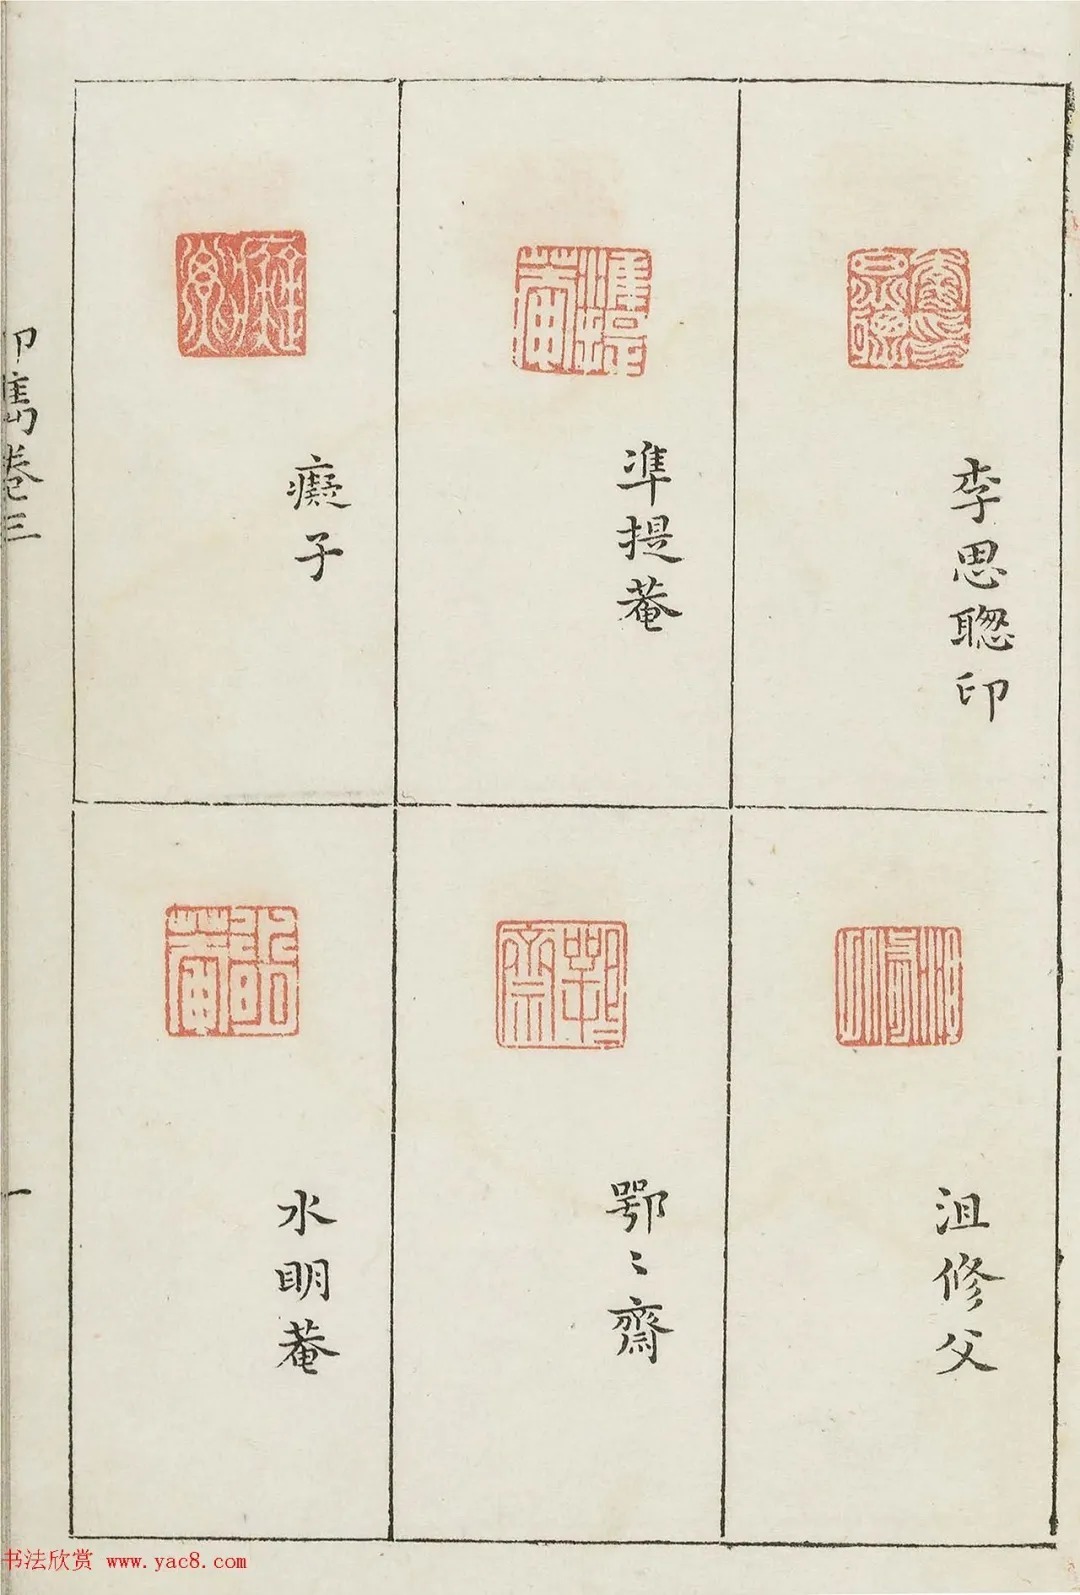 李思聰印
準提菴
癡子
沮修父
鄂〻齋
水明菴
印雋卷三
一
书法欣赏 www.yac8.com